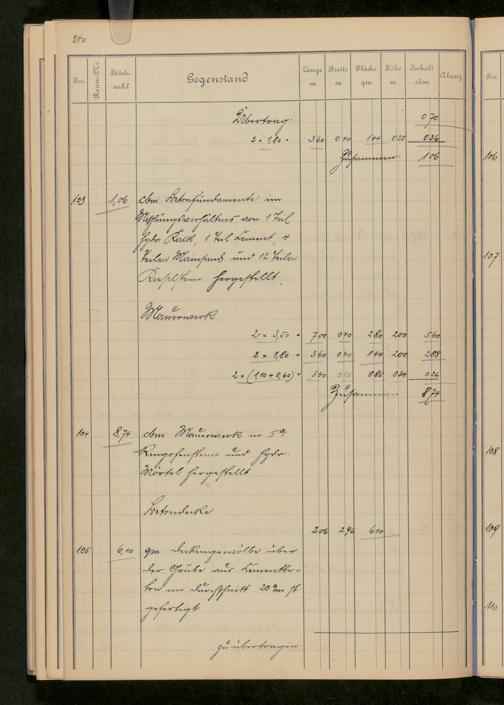 240
Pos. Raum-Nr. Stück-zahl Gegenstand Länge m Breite m Fläche qm Höhe m Inhalt cbm Abzug Pos.
Übertrag: 0 70
2 × 1,80 = 3 60 0 40 1 44 0 25 0 36
Zusammen: 1 06
106
103 1,06 cbm Betonfundamente im
Mischungsverhältnis von 1 Teil
hydr. Kalk, 1 Teil Cement, 4
Teilen Mainsand und 12 Teilen
Kieselsteine hergestellt.
107
Mauerwerk
2 × 3,50 = 7 00 0 40 2 80 2 00 5 60
2 × 1,80 = 3 60 0 40 1 44 2 00 2 88
2 × (1,10 + 0,60) = 3 40 0 25 0 85 0 30 0 26
Zusammen 8 74
104 8,74 cbm Mauerwerk in Ia
Ringofensteine und hydr.
Mörtel hergestellt
108
Betondecke
2 06 2 96 6 10
109
105 6,10 qm Deckengewölbe über
der Grube aus Cementbe-
ton im Durchschnitt 20 cm st.
gefertigt
110
zu übertragen